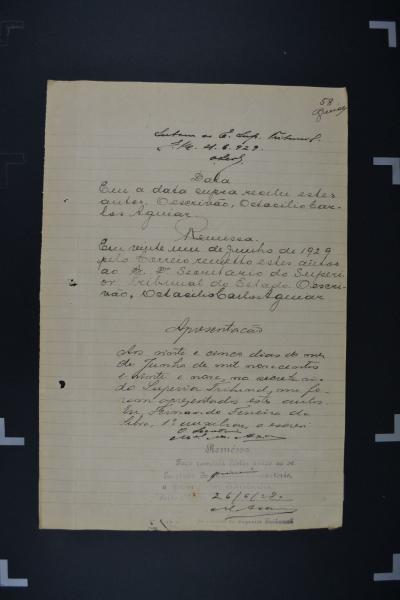 58
Subam ao E. Sup. Tribunal.
21.6.929.
Data
Em a data supra recebi estes
autos. O escrivão, Octacilio Car-
los Aguiar.
Remessa
Em vinte um de Junho de 1929
pelo Correio remetto estes autos
ao Sr. Dr. Secretario do Superi-
or Tribunal do Estado. O escri-
vão, Octacilio Carlos Aguiar
Apresentação
Aos vinte e cinco dias do mez
de Junho de mil novecentos
e vinte e nove, na secretaria
do Superior Tribunal, me fo-
ram apresentados estes autos
Eu, Fernando Ferreira da
Silva, 1º auxiliar, o escrevi
Remessa
Faço remessa destes autos ao
26/6/29.
do Superior Tribunal